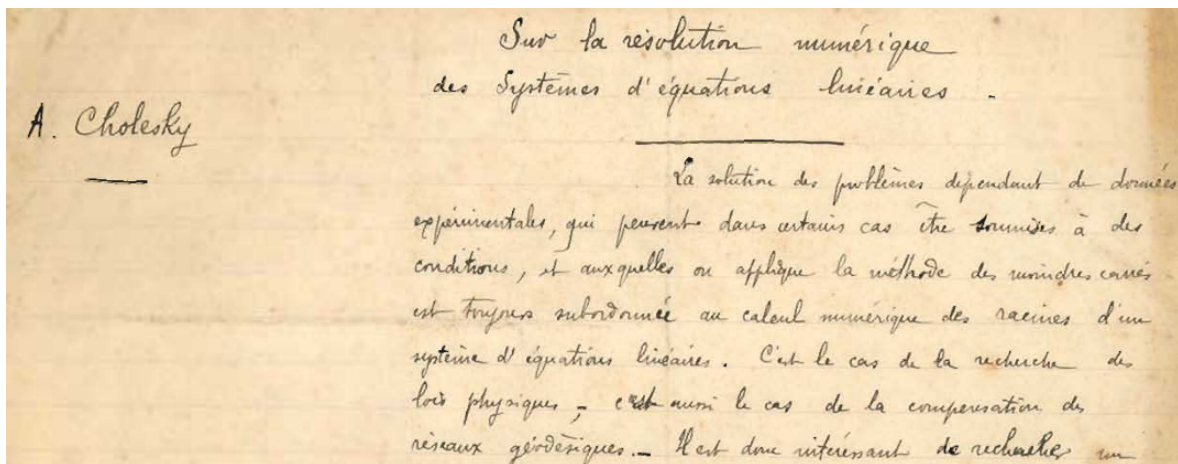 Sur la résolution numérique
des Systèmes d'équations linéaires -
A. Cholesky
La solution des problèmes dépendant de données
expérimentales, qui peuvent dans certains cas être soumises à des
conditions, et auxquelles on applique la méthode des moindres carrés
est toujours subordonnée au calcul numérique des racines d'un
système d'équations linéaires. C'est le cas de la recherche des
lois physiques - c'est aussi le cas de la compensation des
réseaux géodésiques. - Il est donc intéressant de rechercher un